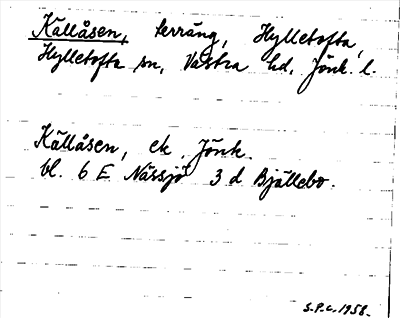 Källåsen, terräng, Hylletofta,
Hylletofta sn, Västra hd, Jönk. l.
Källåsen, ek. Jönk.
bl. 6 E Nässjö 3 d Bjällebo.
S.P.C. 1958.